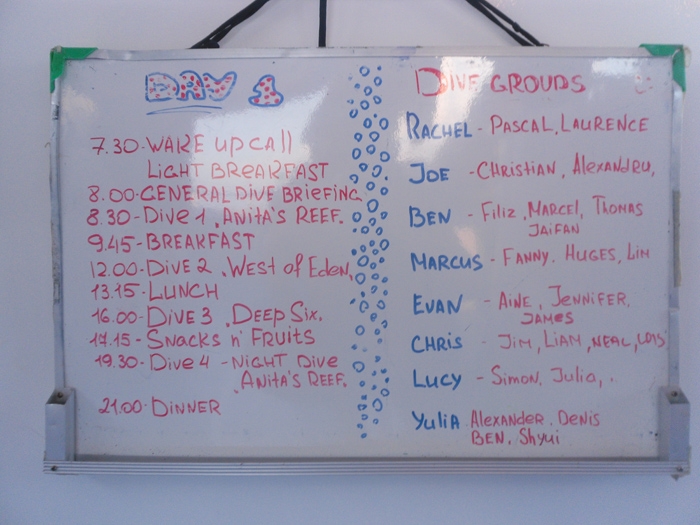 DAY 1
7.30-WAKE UP CALL
LIGHT BREAKFAST
8.00-GENERAL DIVE BRIEFING
8.30-DIVE 1, ANITA'S REEF.
9.45-BREAKFAST
12.00-DIVE 2, WEST OF EDEN,
13.15-LUNCH
16.00-DIVE 3, DEEP SIX.
17.15-SNACKS N' FRUITS
19.30-DIVE 4-NIGHT DIVE
ANITA'S REEF.
21.00-DINNER
DIVE GROUDS
RACHEL - PASCAL, LAURENCE
JOE - CHRISTIAN, ALEXANDRU,
BEN - FILIZ, MARCEL, THOMAS
JAIFAN
MARCUS - FANNY. HUGES, LIM
EVAN - AINE, JENNIFER,
JAMES
CHRIS - JIM, LIAM, NEAL, LOIS
LUCY - SIMON, JULIA, .
YULIA ALEXANDER, DENIS
BEN, SHYUI